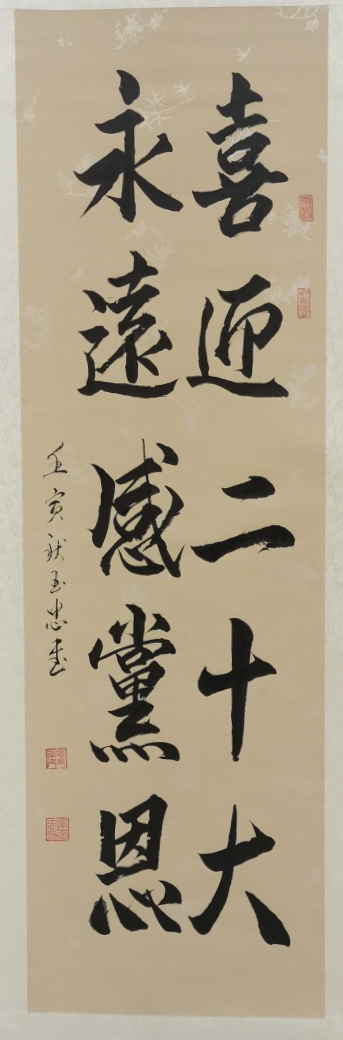 喜迎二十大
永遠感黨恩
壬寅秋玉忠書